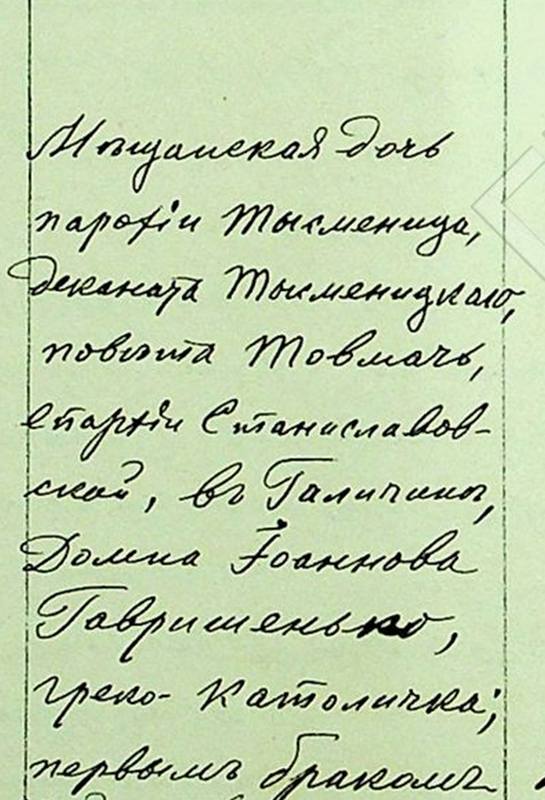 Мѣщанская дочь
парохіи Тысменица,
деканата Тысменицкаго,
повѣта Товмачь,
епархіи Станиславов-
ской, въ Галичинѣ,
Домна Іоаннова
Гавришенько,
греко-католичка;
первымъ бракомъ